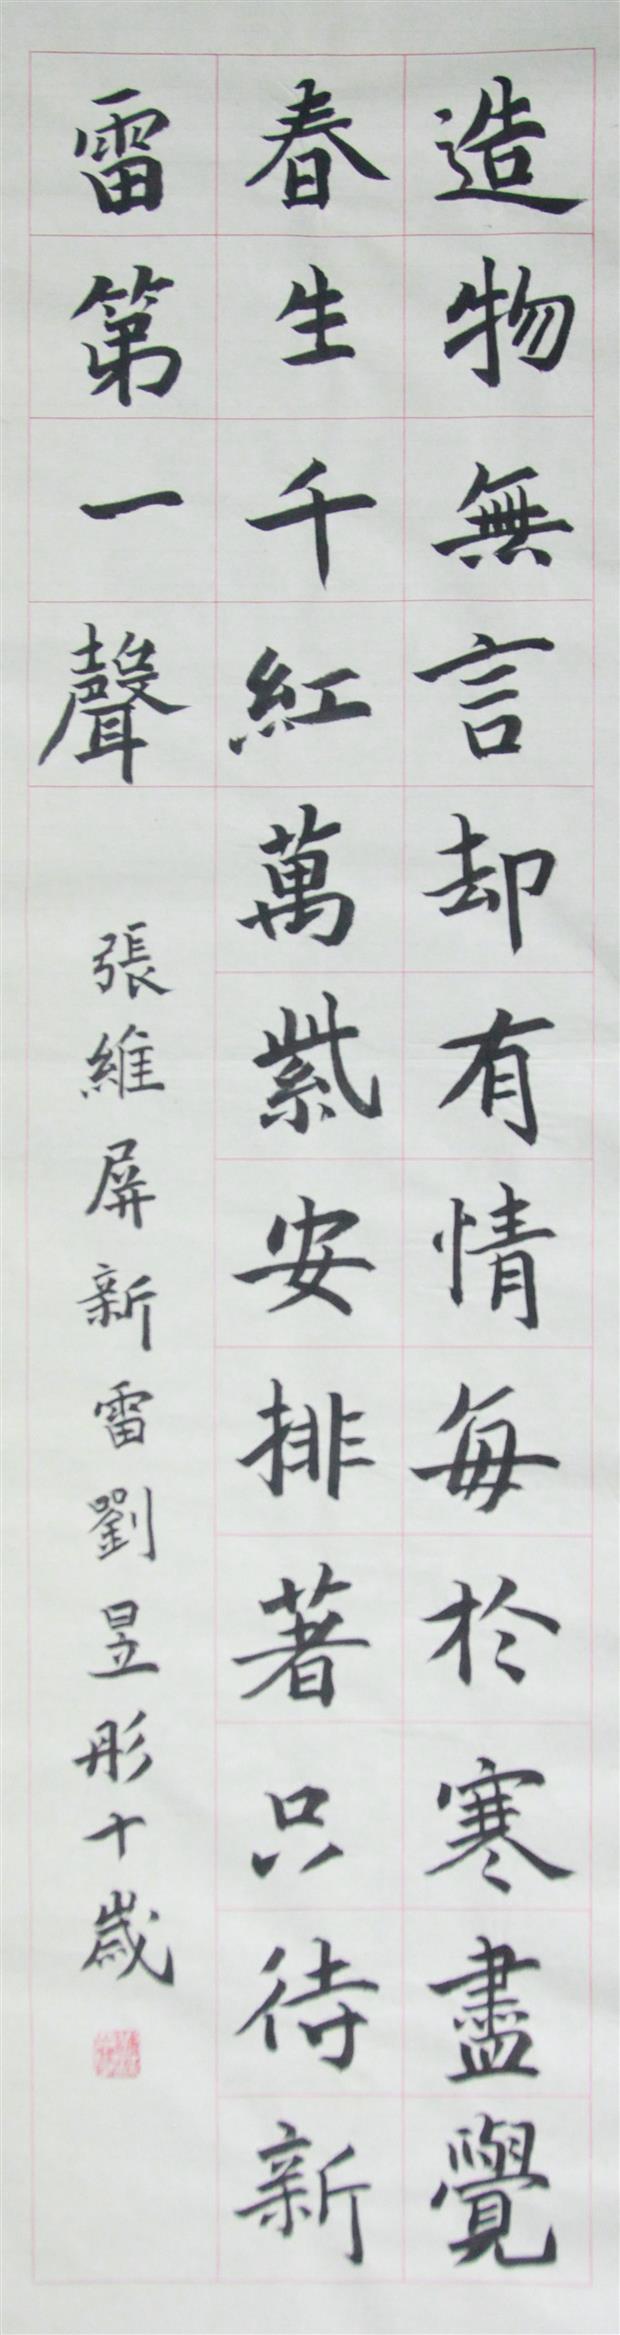 造物無言却有情每於寒盡覺
春生千紅萬紫安排著只待新
雷第一聲
張維屏新雷劉昱彤十歲